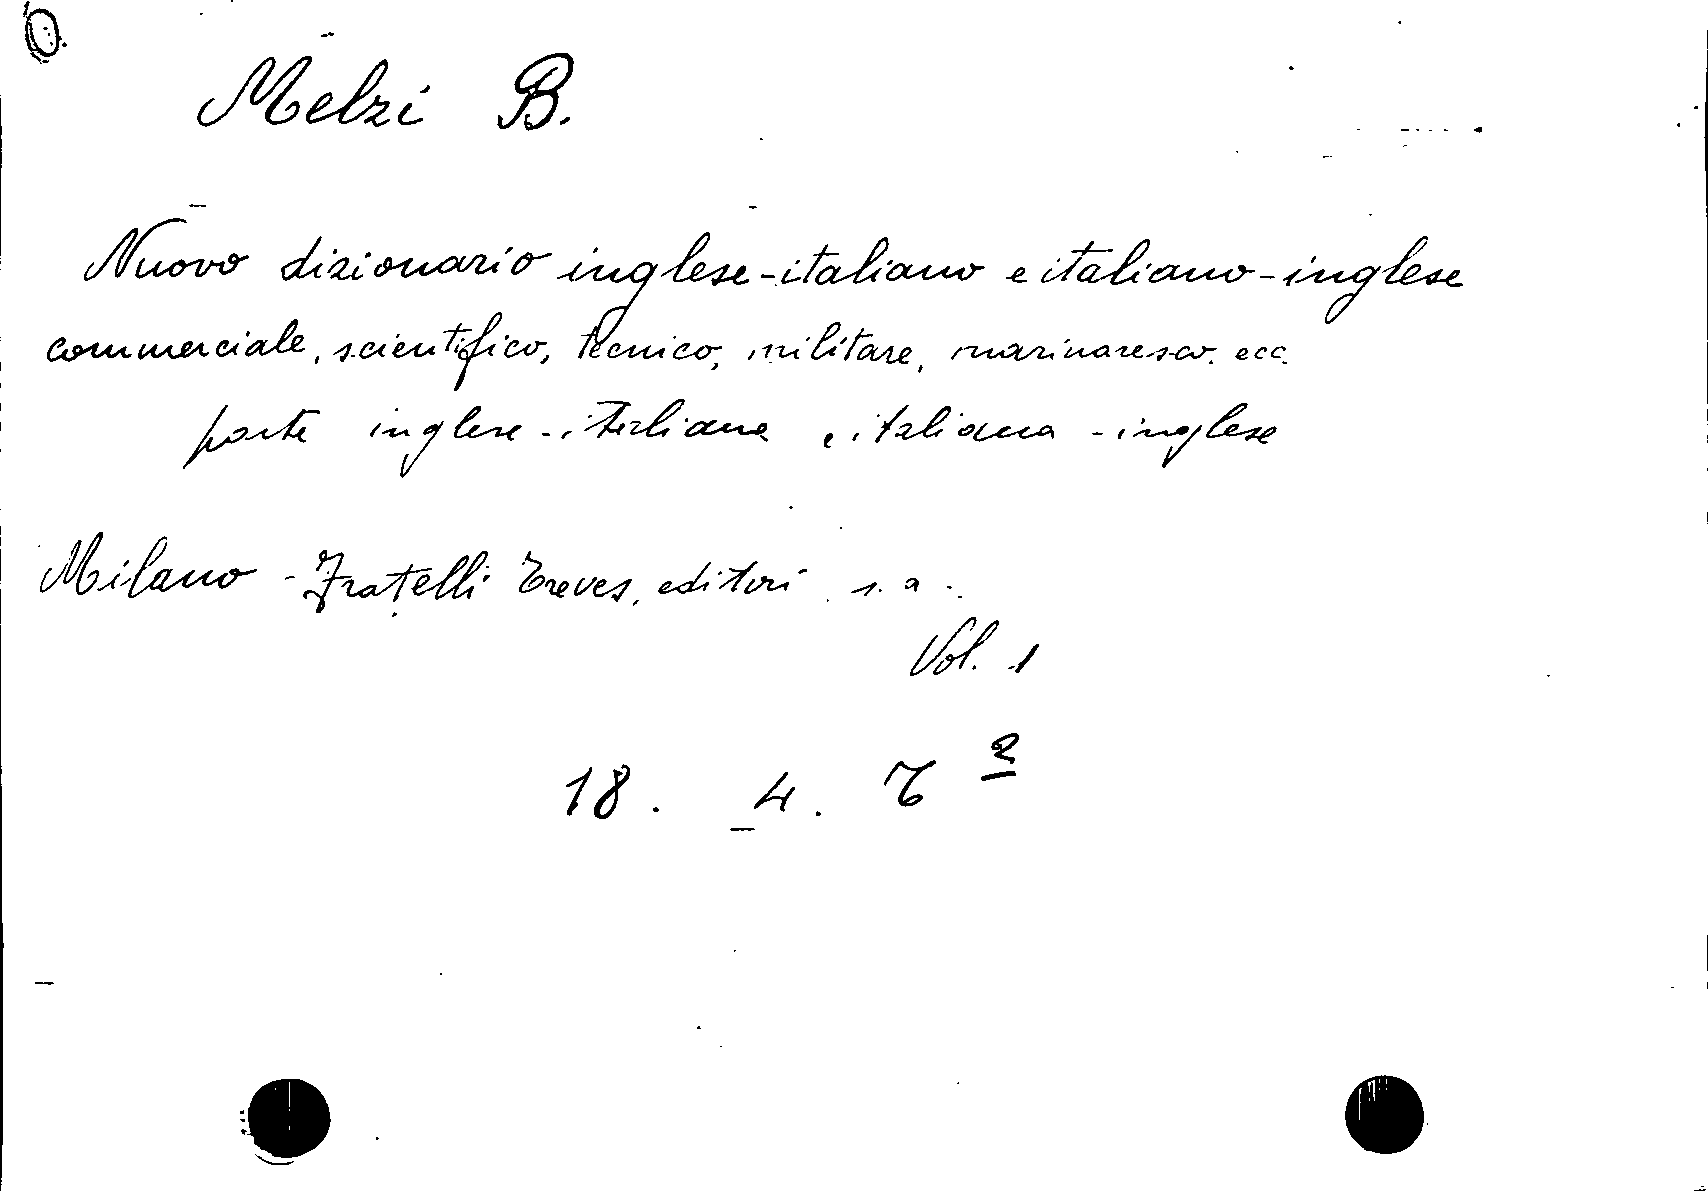 Melzi B.
Nuovo dizionario inglese-italiano e italiano-inglese
commerciale, scientifico, tecnico, militare, marinaresco. ecc.
parte inglese-italiana e italiana-inglese
Milano - Fratelli Treves, editori s. a.
Vol. 1
18. 4. 2